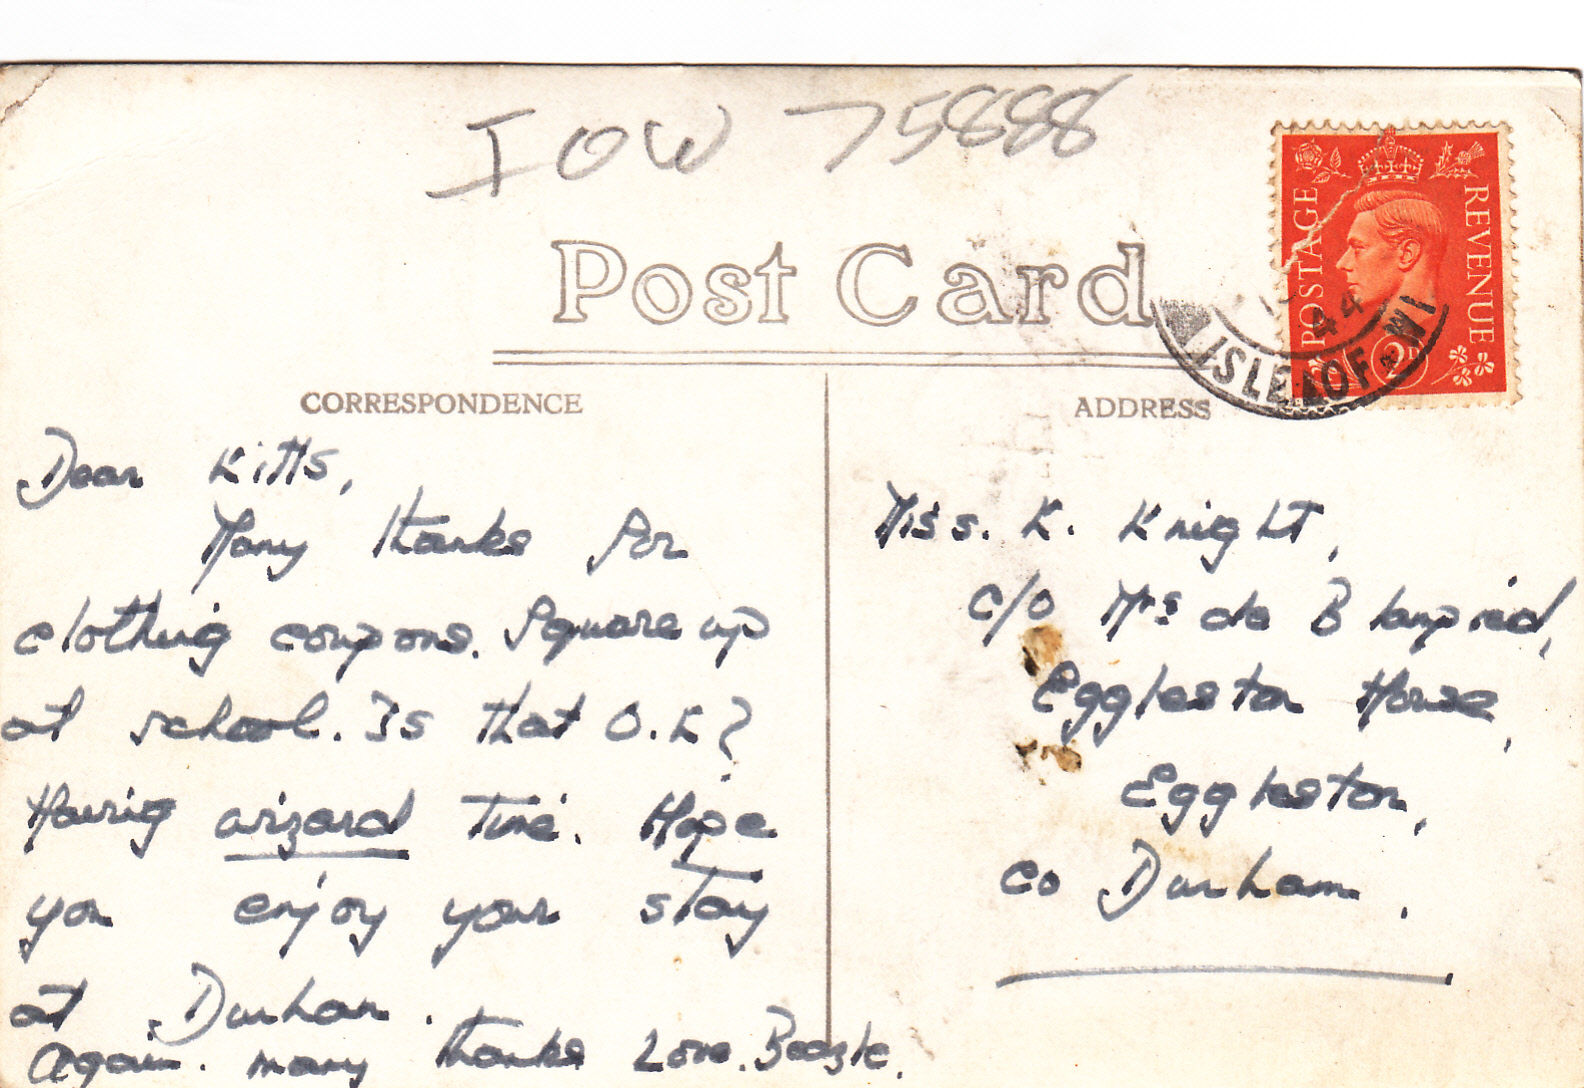 IOW 75888
Post Card
POSTAGE REVENUE
2D
44
ISLE OF WI
CORRESPONDENCE
Dear Kitts,
Many thanks for
clothing coupons. Square up
at school. Is that O.K?
Having wizard time. Hope
you enjoy your stay
at Durham.
Again. many thanks Love. Beazle.
ADDRESS
Miss. K. Knight,
c/o Mrs de Blampied,
Eggleston House,
Eggleston,
co Durham.